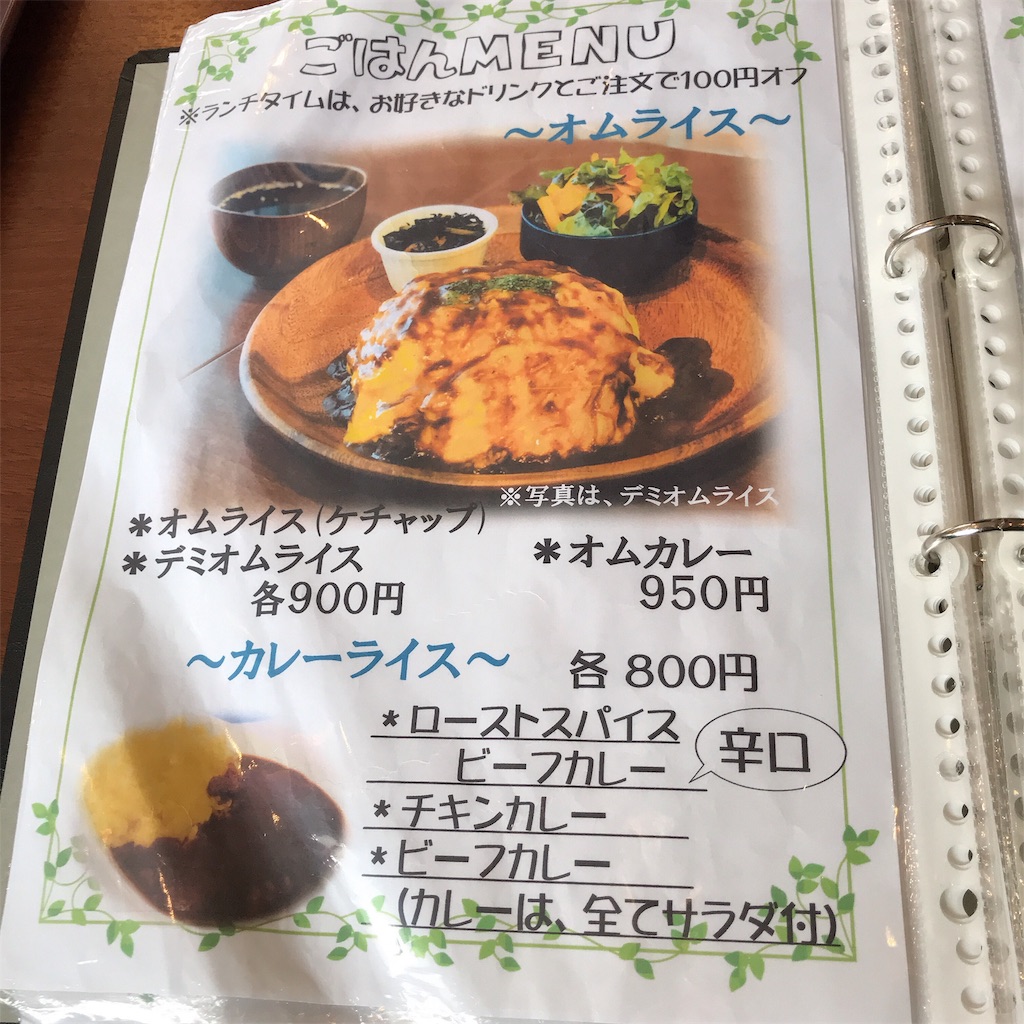 ごはんMENU
※ランチタイムは、お好きなドリンクとご注文で100円オフ
～オムライス～
※写真は、デミオムライス
＊オムライス(ケチャップ)
＊デミオムライス
各900円
＊オムカレー
950円
～カレーライス～
各 800円
＊ローストスパイス
ビーフカレー
辛口
＊チキンカレー
＊ビーフカレー
(カレーは、全てサラダ付)